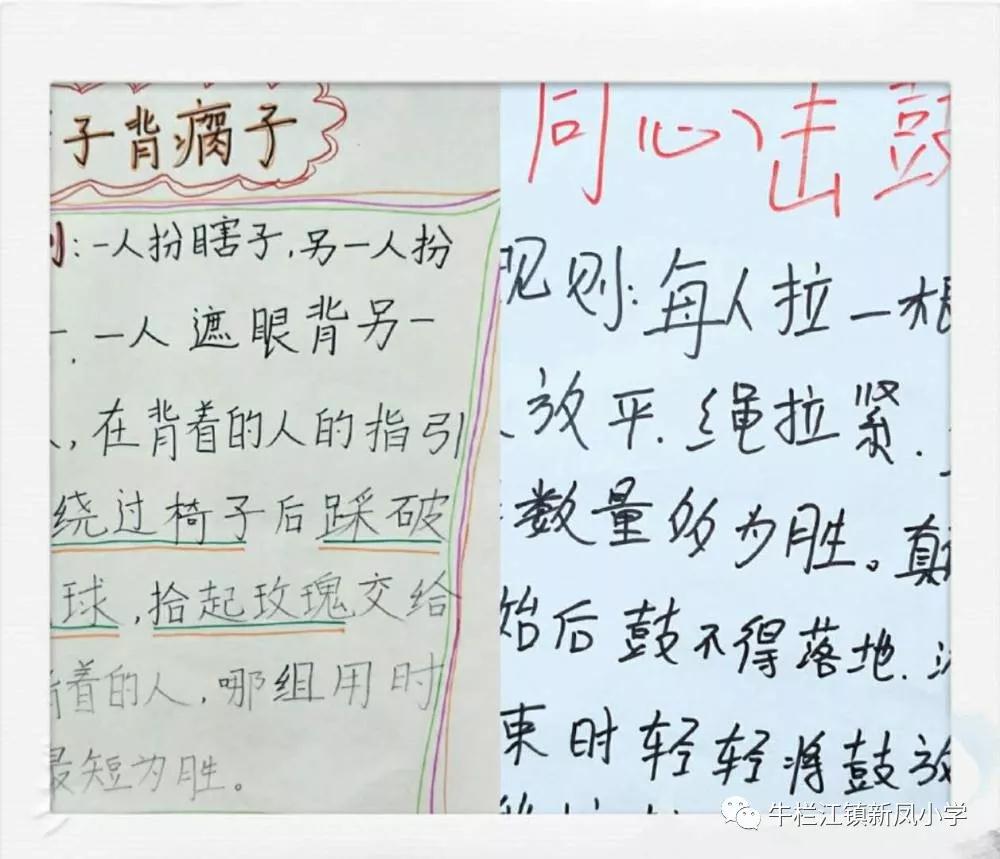 子背瘸子
：一人扮瞎子，另一人扮
一人遮眼背另一
，在背着的人的指引
绕过椅子后踩破
球，拾起玫瑰交给
着的人，哪组用时
最短为胜。
同心击鼓
规则：每人拉一根
放平．绳拉紧．
数量多为胜。真
始后鼓不得落地．
束时轻轻将鼓放
牛栏江镇新凤小学